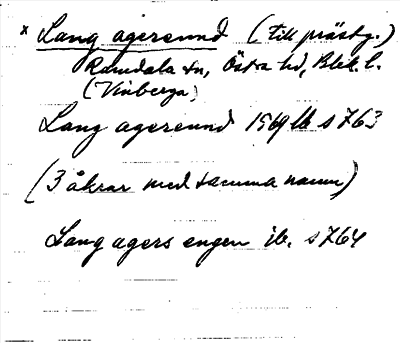 x Lang agersund (till prästg.)
Ramdala sn, Östra hd, Blek. l.
(Vinberga)
Lang agersund 1569 lb s 763
(3 åkrar med samma namn)
Lang agers engen ib. s 764